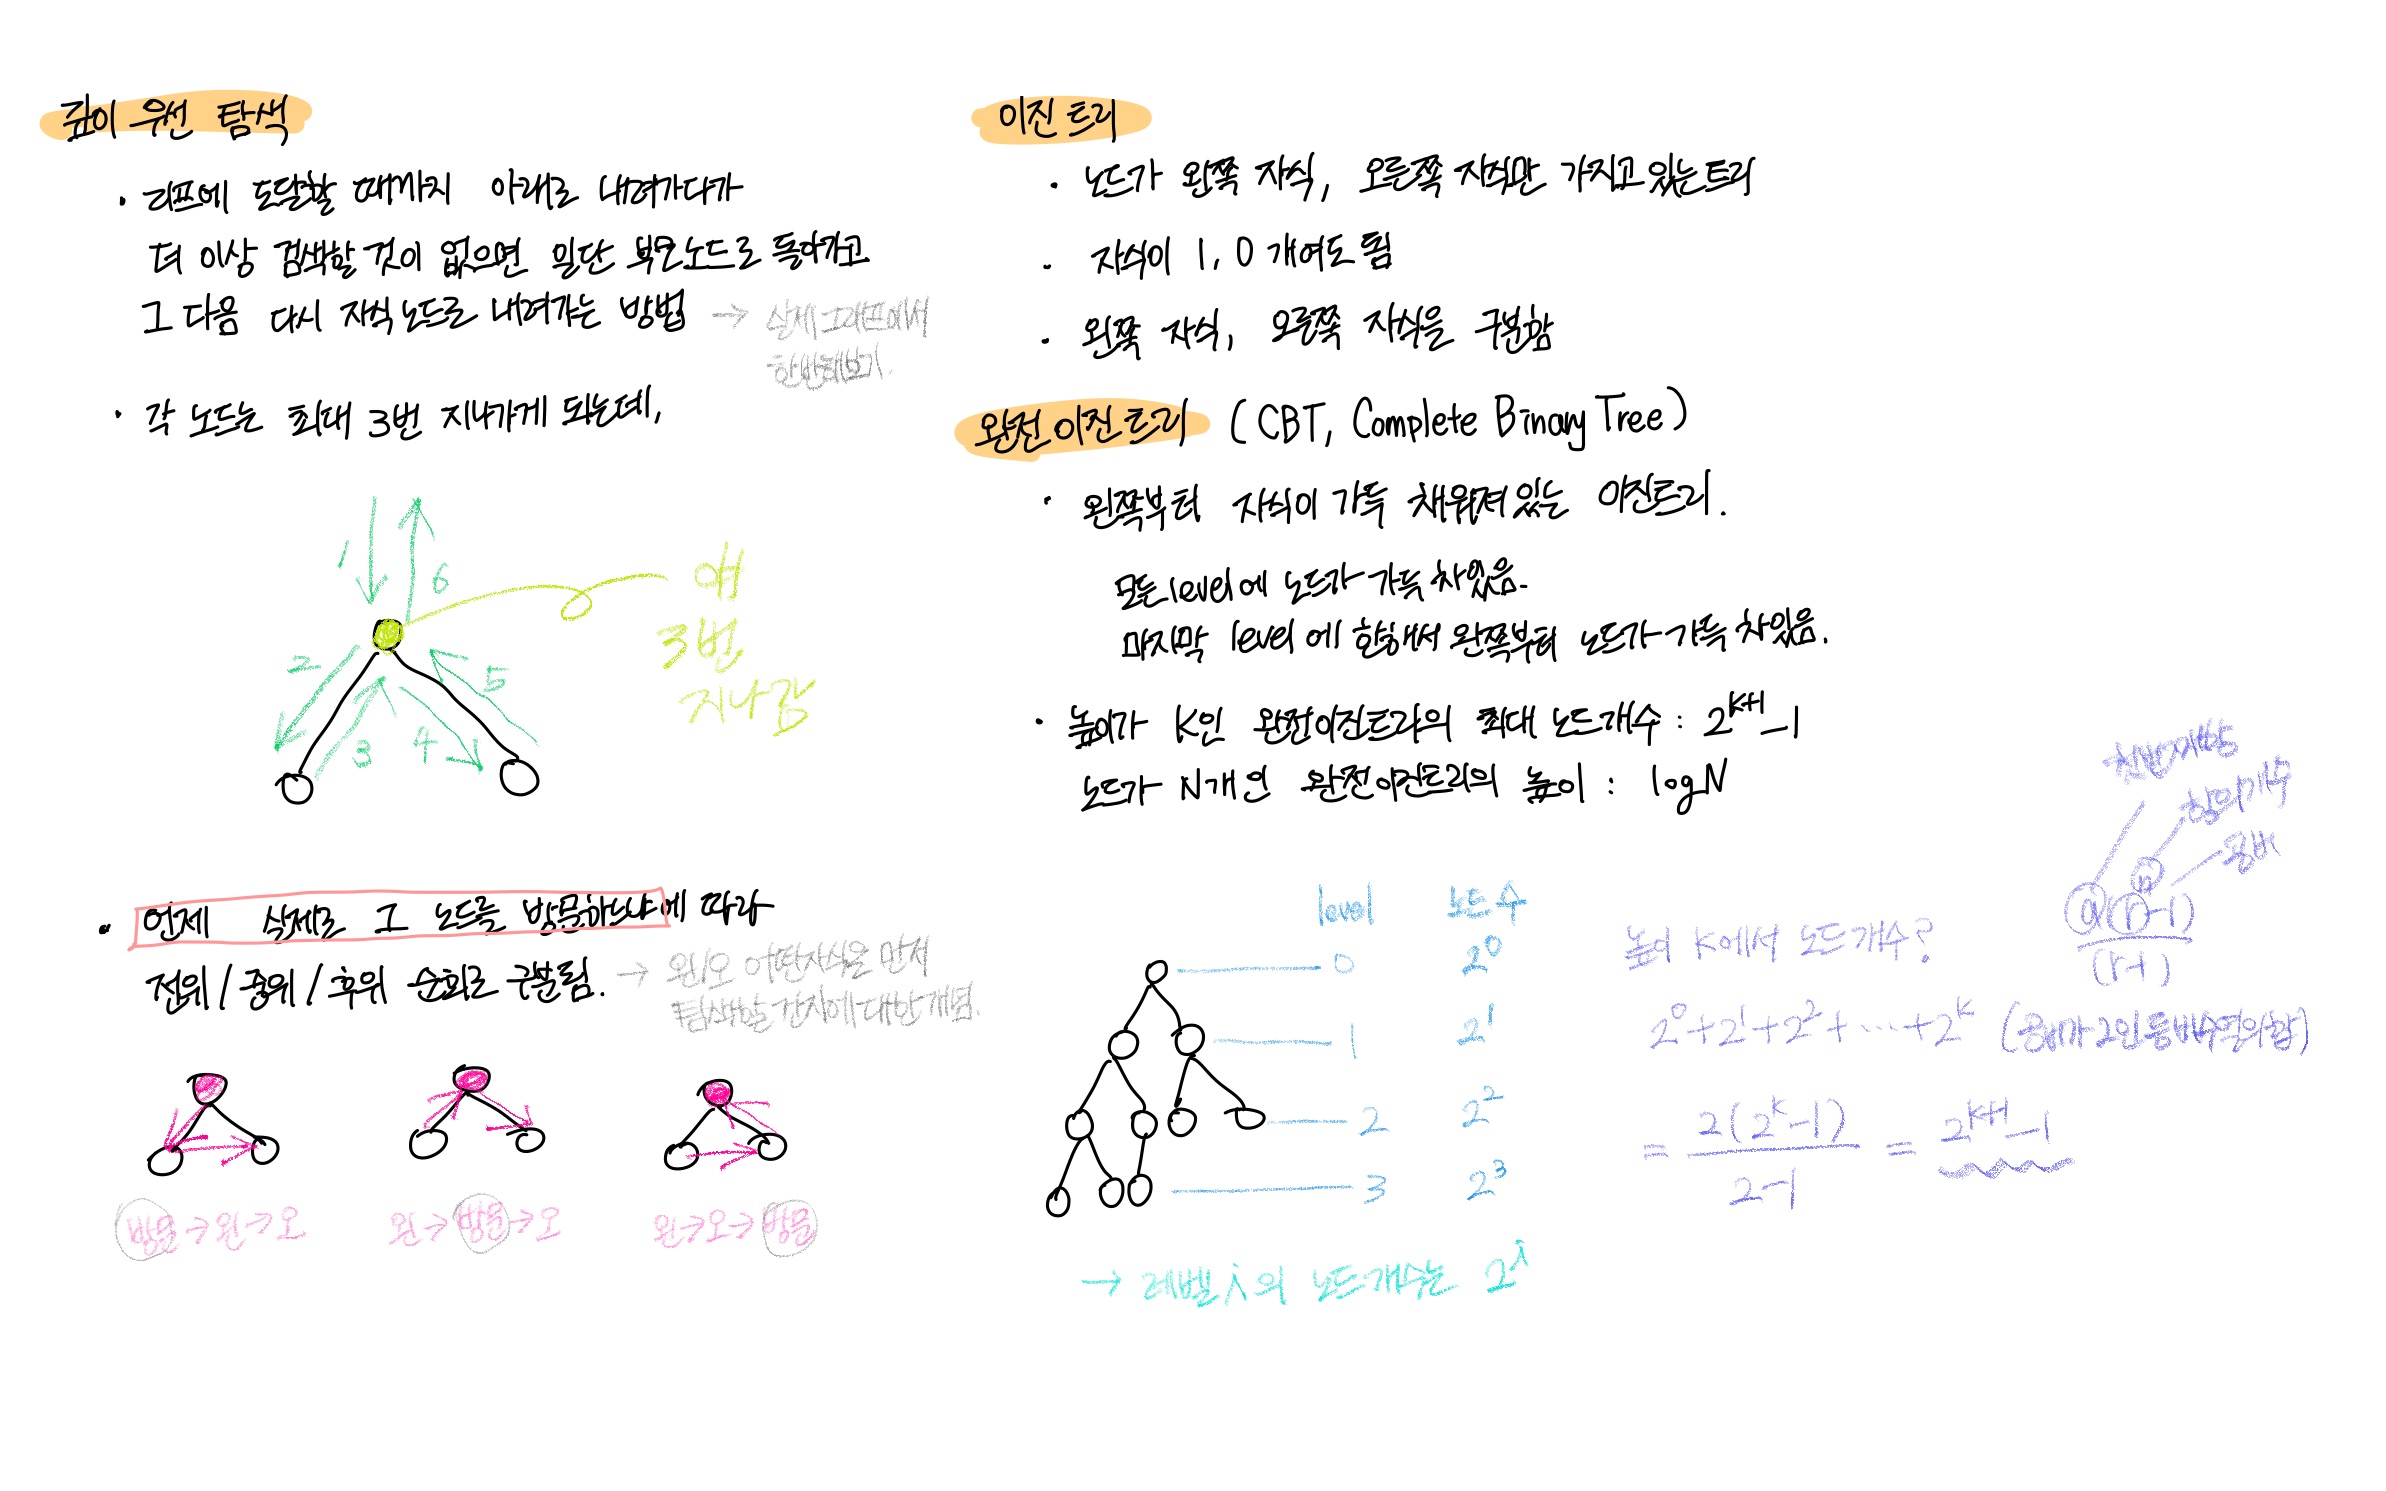 깊이 우선 탐색
· 리프에 도달할 때까지 아래로 내려가다가
더 이상 검색할 것이 없으면 일단 부모노드로 돌아가고
그 다음 다시 자식노드로 내려가는 방법 → 실제 그래프에서
한번해보기.
· 각 노드는 최대 3번 지나가게 되는데,
1
6
얘
3번
지나감
2
5
3
4
· 언제 실제로 그 노드를 방문하느냐에 따라
전위 / 중위 / 후위 순회로 구분됨. → 왼/오 어떤자식을 먼저
탐색할 건지에 대한 개념.
방문 → 왼 → 오
왼 → 방문 → 오
왼 → 오 → 방문
이진트리
· 노드가 왼쪽 자식, 오른쪽 자식만 가지고 있는 트리
· 자식이 1, 0 개여도 됨
· 왼쪽 자식, 오른쪽 자식을 구분함
완전이진트리 (CBT, Complete Binary Tree)
· 왼쪽부터 자식이 가득 채워져 있는 이진트리.
모든 level에 노드가 가득 차있음.
마지막 level에 한해서 왼쪽부터 노드가 가득 차있음.
· 높이가 K인 완전이진트리의 최대 노드개수 : 2^{K+1}-1
노드가 N개인 완전이진트리의 높이 : logN
level 노드 수
0 2^0
1 2^1
2 2^2
3 2^3
→ 레벨 i의 노드개수는 2^i
첫번째항
항의개수
공비
a(r^n-1)
(r-1)
높이 K에서 노드개수?
2^0+2^1+2^2+⋯+2^k (공비가 2인 등비수열의 합)
= 2(2^k-1) / 2-1 = 2^{k+1}-1